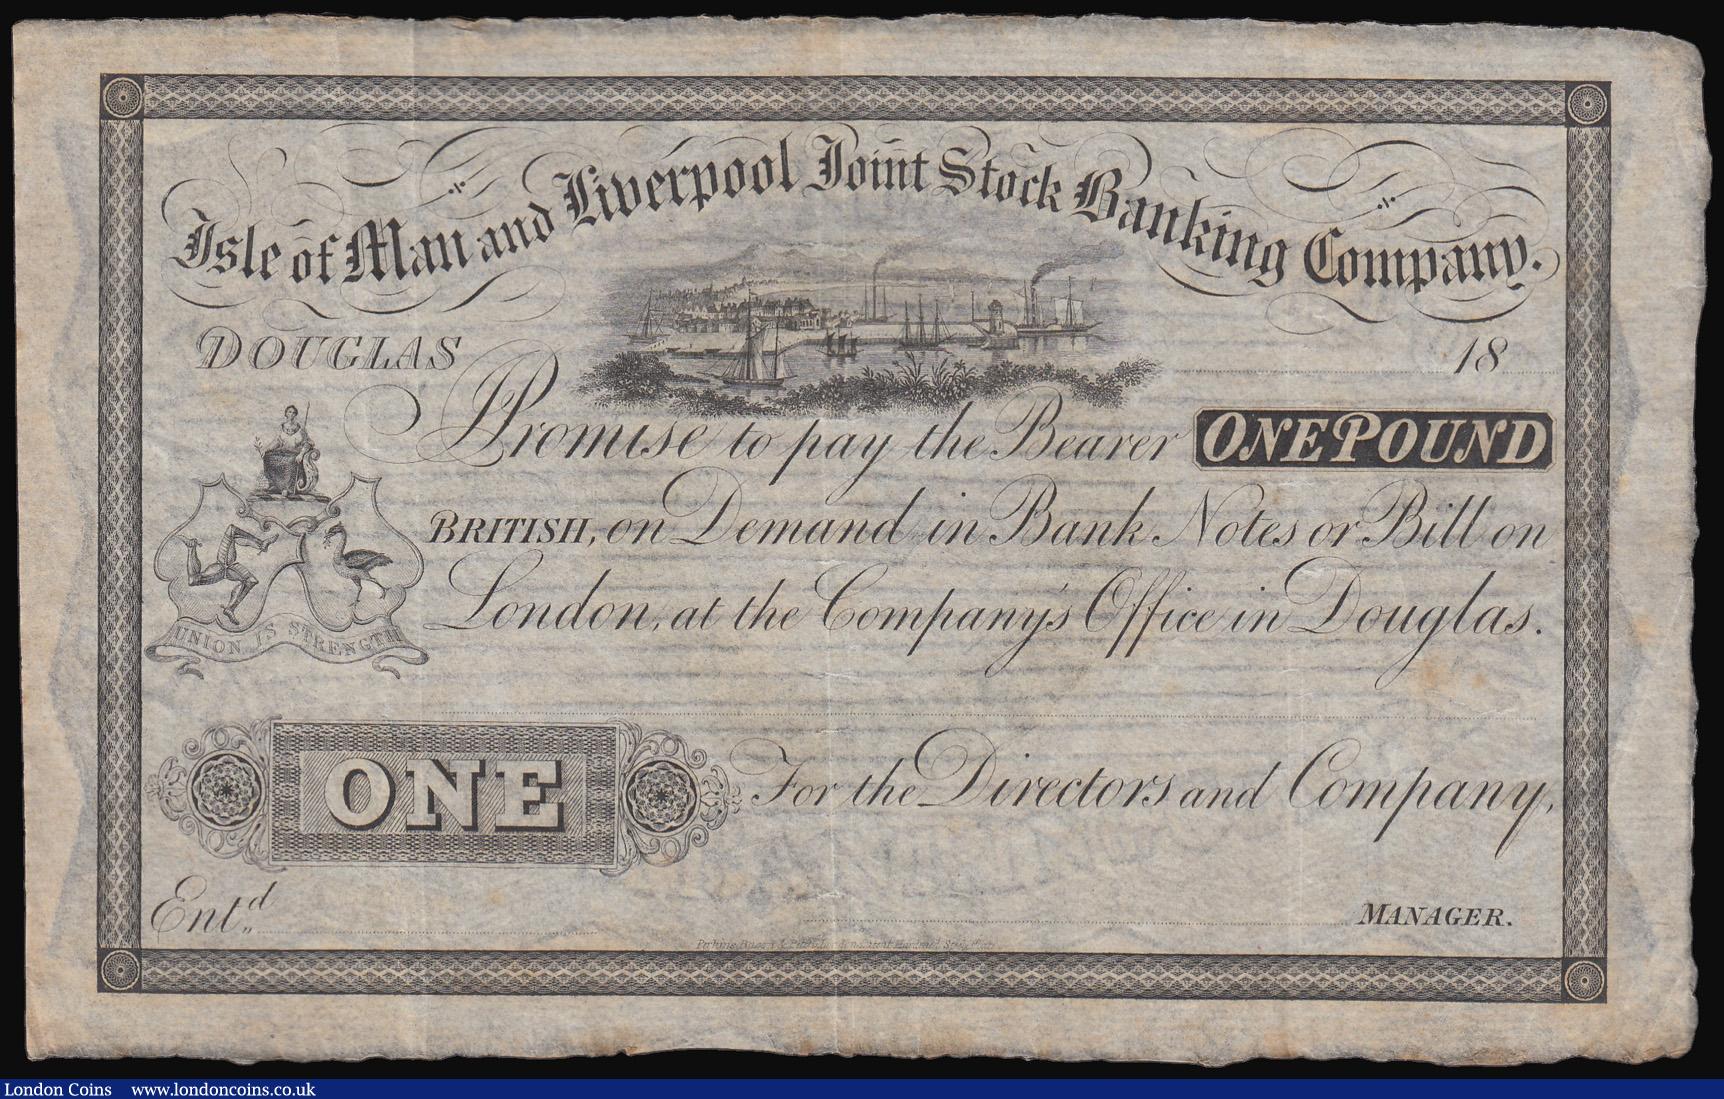 Isle of Man and Liverpool Joint Stock Banking Company.
DOUGLAS
18
Promise to pay the Bearer ONE POUND
BRITISH, on Demand in Bank Notes or Bill on
London, at the Company's Office in Douglas.
UNION IS STRENGTH
ONE
For the Directors and Company,
Ent.d
MANAGER.
Perkins, Bacon & Petch, London,
London Coins www.londoncoins.co.uk